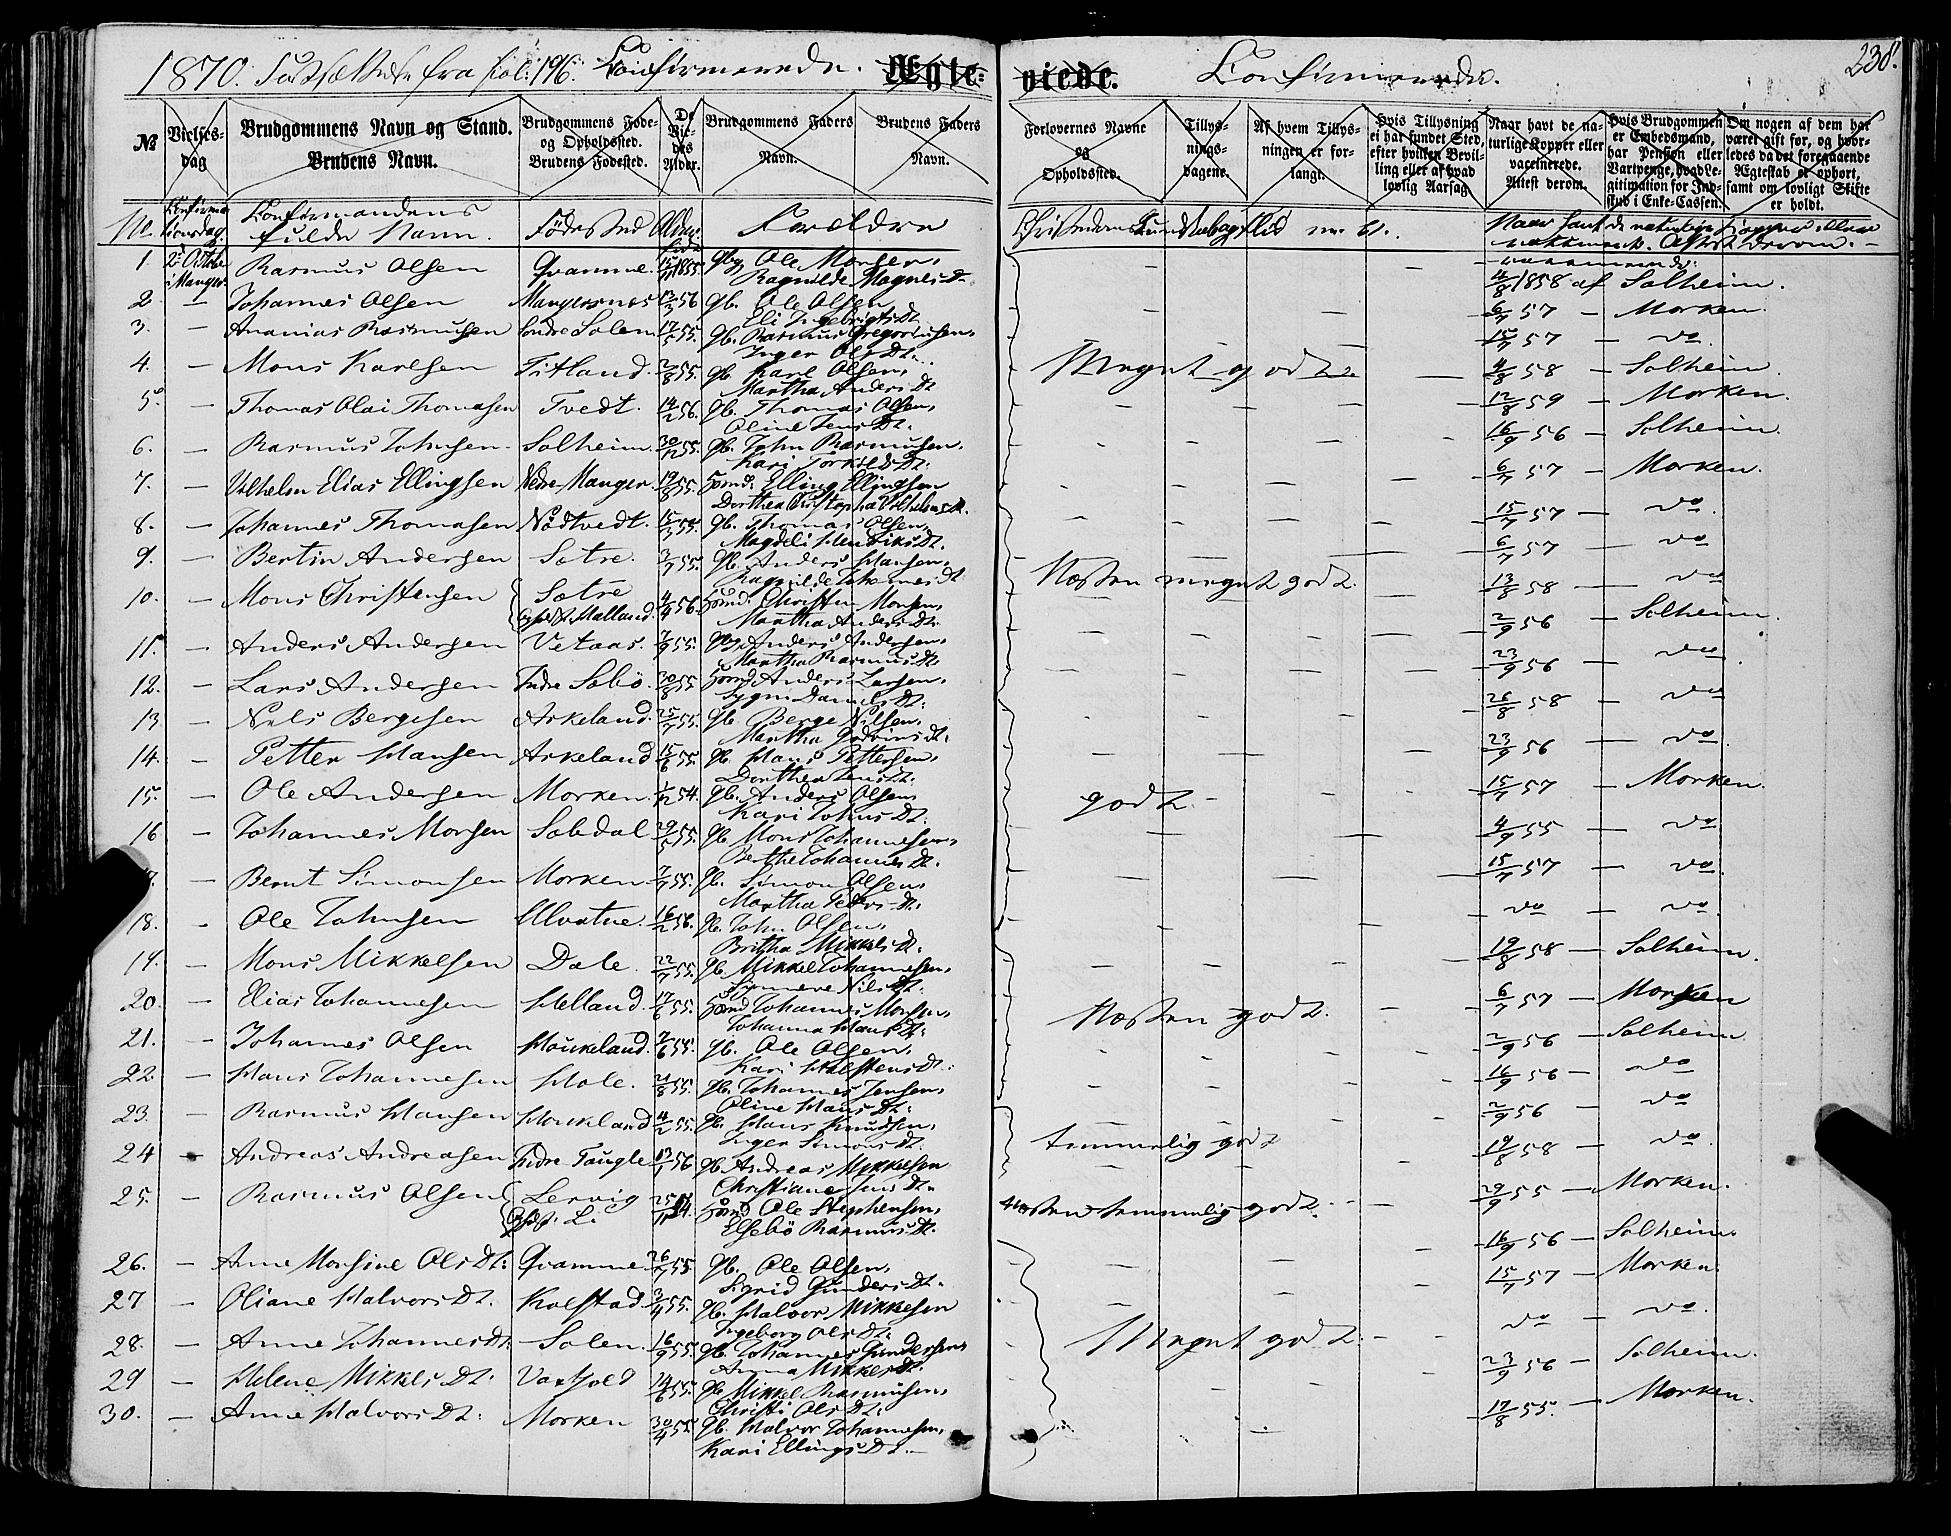 1870. Fortsættelse fra fol: 196. Confirmerede. Ægte-
viede. Confirmerede. 238.
№
Vielses-
dag
Brudgommens Navn og Stand.
Brudens Navn.
Brudgommens Føde-
og Opholdssted.
Brudens Fødested.
De
Vie-
des
Alder.
Brudgommens Faders
Navn.
Brudens Faders
Navn.
Forlovernes Navne
og
Opholdssted.
Tillys-
nings-
dagene.
Af hvem Tillys-
ningen er for-
langt.
Hvis Tillysning
ei har fundet Sted,
efter hvilken Bevil-
ling eller af hvad
lovlig Aarsag.
Naar havt de na-
turlige Kopper eller
vaccinerede.
Attest derom.
Hvis Brudgommen
er Embedsmand,
har Pension eller
Vartpenge, hvad Le-
gitimation for Ind-
skud i Enke-Cassen.
Om nogen af dem har
været gift før, og hvor-
ledes da det foregaaende
Ægteskab er ophørt,
samt om lovligt Skifte
er holdt.
Confirma-
tionsdag.
Confirmandens
fulde Navn.
Fødested
Alder.
Forældre
Christendoms Kundskab og Flid m. v.
Naar havt de naturlige Kopper eller
vaccinerede. Attest derom.
1 2. Octobr i Manger Rasmus Olsen Qvamme. 15/11 1855 Gbr. Ole Monsen,
Ragnilde Magnesdt. 4/8 1858 af Solheim.
2 — Johannes Olsen Mangersnes 13/3 56 Gb. Ole Olsen
Eli Ingebrigtsdt. 6/7 57 — Morken.
3. — Ananias Rasmussen Søndre Solem 17/5 55. Gb. Rasmus Gregoriusen,
Inger Olsdt. 15/7 57 — do.
4. — Mons Karlsen Titland. 2/8 55. Gb. Karl Olsen,
Martha Andersdt Meget godt. 4/8 58 — Solheim.
5. — Thomas Olai Thomasen Tvedt. 14/2 56. Gb. Thomas Olsen,
Oline Jensdt. 12/8 59 — Morken.
6. — Rasmus Johnsen Solheim. 30/12 55. Gb. John Rasmusen.
Kari Torkildsdt. 16/9 56 — Solheim.
7. — Vilhelm Elias Ellingsen Nedre Manger. 19/8 55. Huusmd. Elling Ellingsen
6/7 57 — Morken.
8. — Johannes Thomasen Nødtvedt. 15/3 55. Gb. Thomas Olsen,
Magdeli Hendriksdt. 15/7 57 — do.
9. — Bertin Andersen Sætre. 3/7 55. Gb. Anders Hansen,
Ragnilde Johannesdt 6/7 57 — do
10. — Mons Christensen Sætre
Opholdst. Halland. 4/4 56. Huusmd. Christen Monsen,
Martha Andersdt. Næsten meget godt. 13/8 58 — do
11. — Anders Andersen Vetaas. 7/9 55. Gbr. Anders Andersen,
Martha Rasmusdt. 2/9 56 — Solheim.
12. — Lars Andersen Indre Sæbø. 30/8 55 Huusmd. Anders Larsen,
Sygni Danielsdt. 23/9 56 — do.
13 — Nils Bergesen Askeland. 25/7 55. Gb. Berge Nilsen,
Martha 28/8 58 — do
14. — Petter Hansen Askeland 15/6 55. Gb. Hans Pettersen,
Dorthea Jensdt. 23/9 56 — do.
15. — Ole Andersen Morken. 1/12 54. Gb. Anders Olsen,
Kari Johnsdt. godt. 15/7 57 — Morken.
16 — Johannes Monsen Sæbdal 29/5 55. Gb. Mons Johannesen,
Berthe Johannesdt. 4/9 55 — do
— Bernt Simonsen Morken. 7/7 55. Gb. Simon Olsen,
Martha Pedersdt. 15/7 57 — do
18. — Ole Johnsen Ulvatne. 16/2 56. Gb. John Olsen,
Britha Mikkelsdt. do — do.
19. — Mons Mikkelsen Dale. 22/7 55. Gb. Mikkel Johannesen,
Synneve Nilsdt. 19/8 58 — Solheim.
20. — Elias Johannesen Helland. 17/6 55. Huusmd. Johannes Monsen,
Johanna Hansdt. Næsten godt. 6/7 57 — Morken
21. — Johannes Olsen Haukeland. 7/6 55. Gb. Ole Olsen,
Kari Halstensdt. 2/9 56 — Solheim
22. — Hans Johannesen Hole. 21/8 55. Gb. Johannes Jensen,
Oline Hansdt. 16/9 56 — do
23. — Rasmus Hansen Haukeland 4/2 55. Gb. Hans Knudsen,
Inger Simonsdt. 2/9 56 — do
24 — Andreas Andreasen Indre Taugle 13/1 56 Gb. Andreas Mikkelsen
Christiane Jensdt. temmelig godt 19/8 58 — do.
25. — Rasmus Olsen Lervig
Opholdst. Li. 25/11 54. Huusmd. Ole Stephensen,
Elsebø Rasmusdt. Næsten temmelig godt. 29/9 55 — Morken.
26. — Anne Monsine Olsdt. Qvamme. 26/7 55 Gb. Ole Olsen,
Sigrid Gundersdt. 16/9 56 — Solheim.
27 — Oliane Halvorsdt. Kolstad. 3/4 55. Gb. Halvor Mikkelsen
Ingeborg Olsdt. 15/7 57 — Morken.
28. — Anne Johannesdt. Solem. 16/9 55. Gb. Johannes Gundersen
Anna Mikkelsdt. Meget godt. do — do.
29 — Helene Mikkelsdt. Vaxfold 14/6 55. Gb. Mikkel Rasmusen,
Christi Olsdt. 23/9 56 — Solheim.
30. — Anne Halvorsdt. Morken 30/4 55 Gb. Halvor Johannesen,
Kari Ellingsdt. 17/8 55. — Morken.